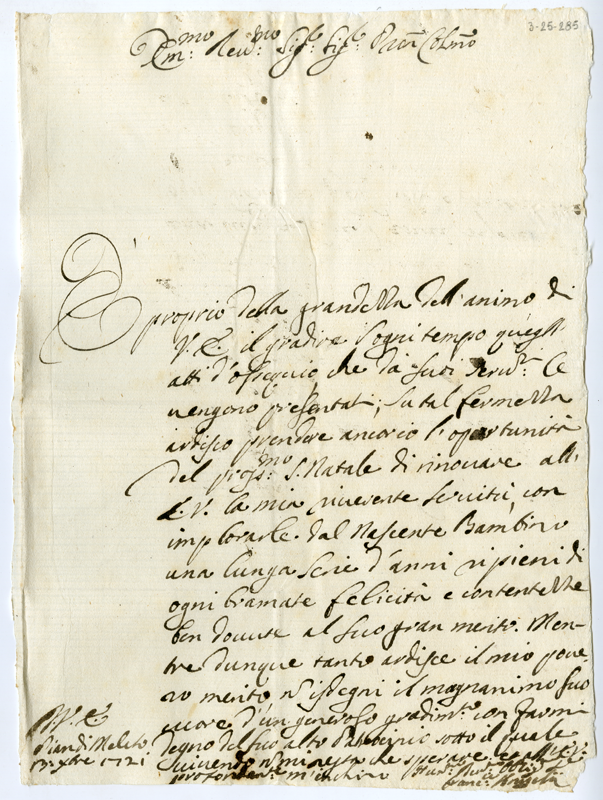 3-25-285
Em:mo Reu:mo Sig:e Sig:e Pron Colmo
È proprio della grandezza dell'animo di
V. E. il gradire d'ogni tempo quegl'
atti d'ossequio che da suoi seru:ri Le
uengono presentati; su tal fermezza
ardisco prendere ancor io l'opportunità
del pross:mo S. Natale di rinouare all'
E. V. la mia riuerente seruitù, con
implorarle dal Nascente Bambino
una lunga serie d'anni ripieni di
ogni bramate felicità e contentezze
ben douute al suo gran merito. Men-
tre dunque tanto ardisce il mio poue-
ro merito n' isdegni il magnanimo suo
cuore d'un generoso gradim:to con farmi
degno del suo alto Patrocinio sotto il quale
uiuendo n' mi resta che sperare
profondam:te m'inchino
V. E.
Pian di Meleto
Xbre 1721